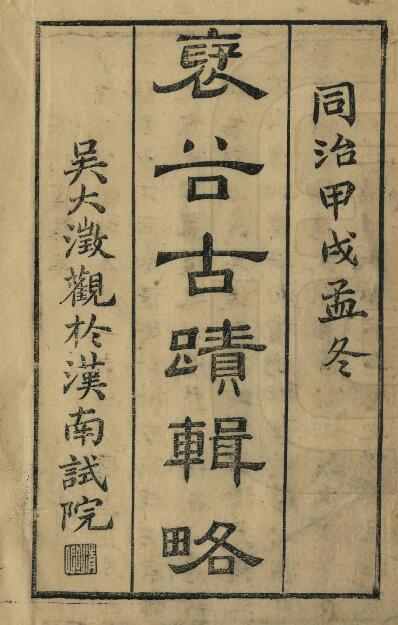 同治甲戌孟冬
褒谷古蹟輯略
吳大澂觀於漢南試院